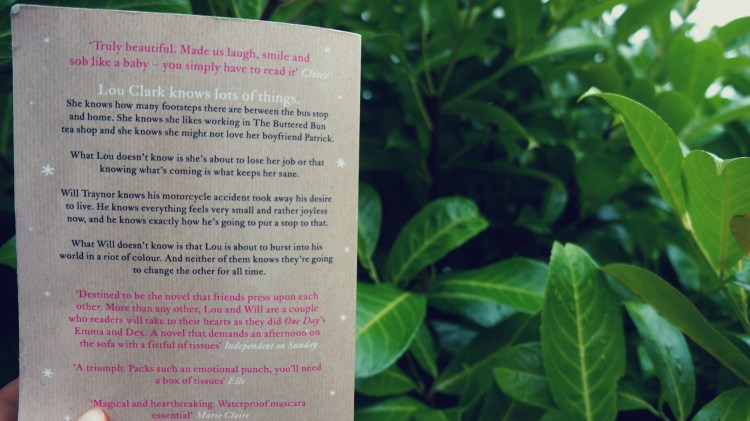 ‘Truly beautiful. Made us laugh, smile and
sob like a baby – you simply have to read it’ Closer
Lou Clark knows lots of things.
She knows how many footsteps there are between the bus stop
and home. She knows she likes working in The Buttered Bun
tea shop and she knows she might not love her boyfriend Patrick.
What Lou doesn’t know is she’s about to lose her job or that
knowing what’s coming is what keeps her sane.
Will Traynor knows his motorcycle accident took away his desire
to live. He knows everything feels very small and rather joyless
now, and he knows exactly how he’s going to put a stop to that.
What Will doesn’t know is that Lou is about to burst into his
world in a riot of colour. And neither of them knows they’re going
to change the other for all time.
‘Destined to be the novel that friends press upon each
other. More than any other, Lou and Will are a couple
who readers will take to their hearts as they did One Day’s
Emma and Dex. A novel that demands an afternoon on
the sofa with a fistful of tissues’ Independent on Sunday
‘A triumph. Packs such an emotional punch, you’ll need
a box of tissues’ Elle
‘Magical and heartbreaking. Waterproof mascara
essential’ Marie Claire